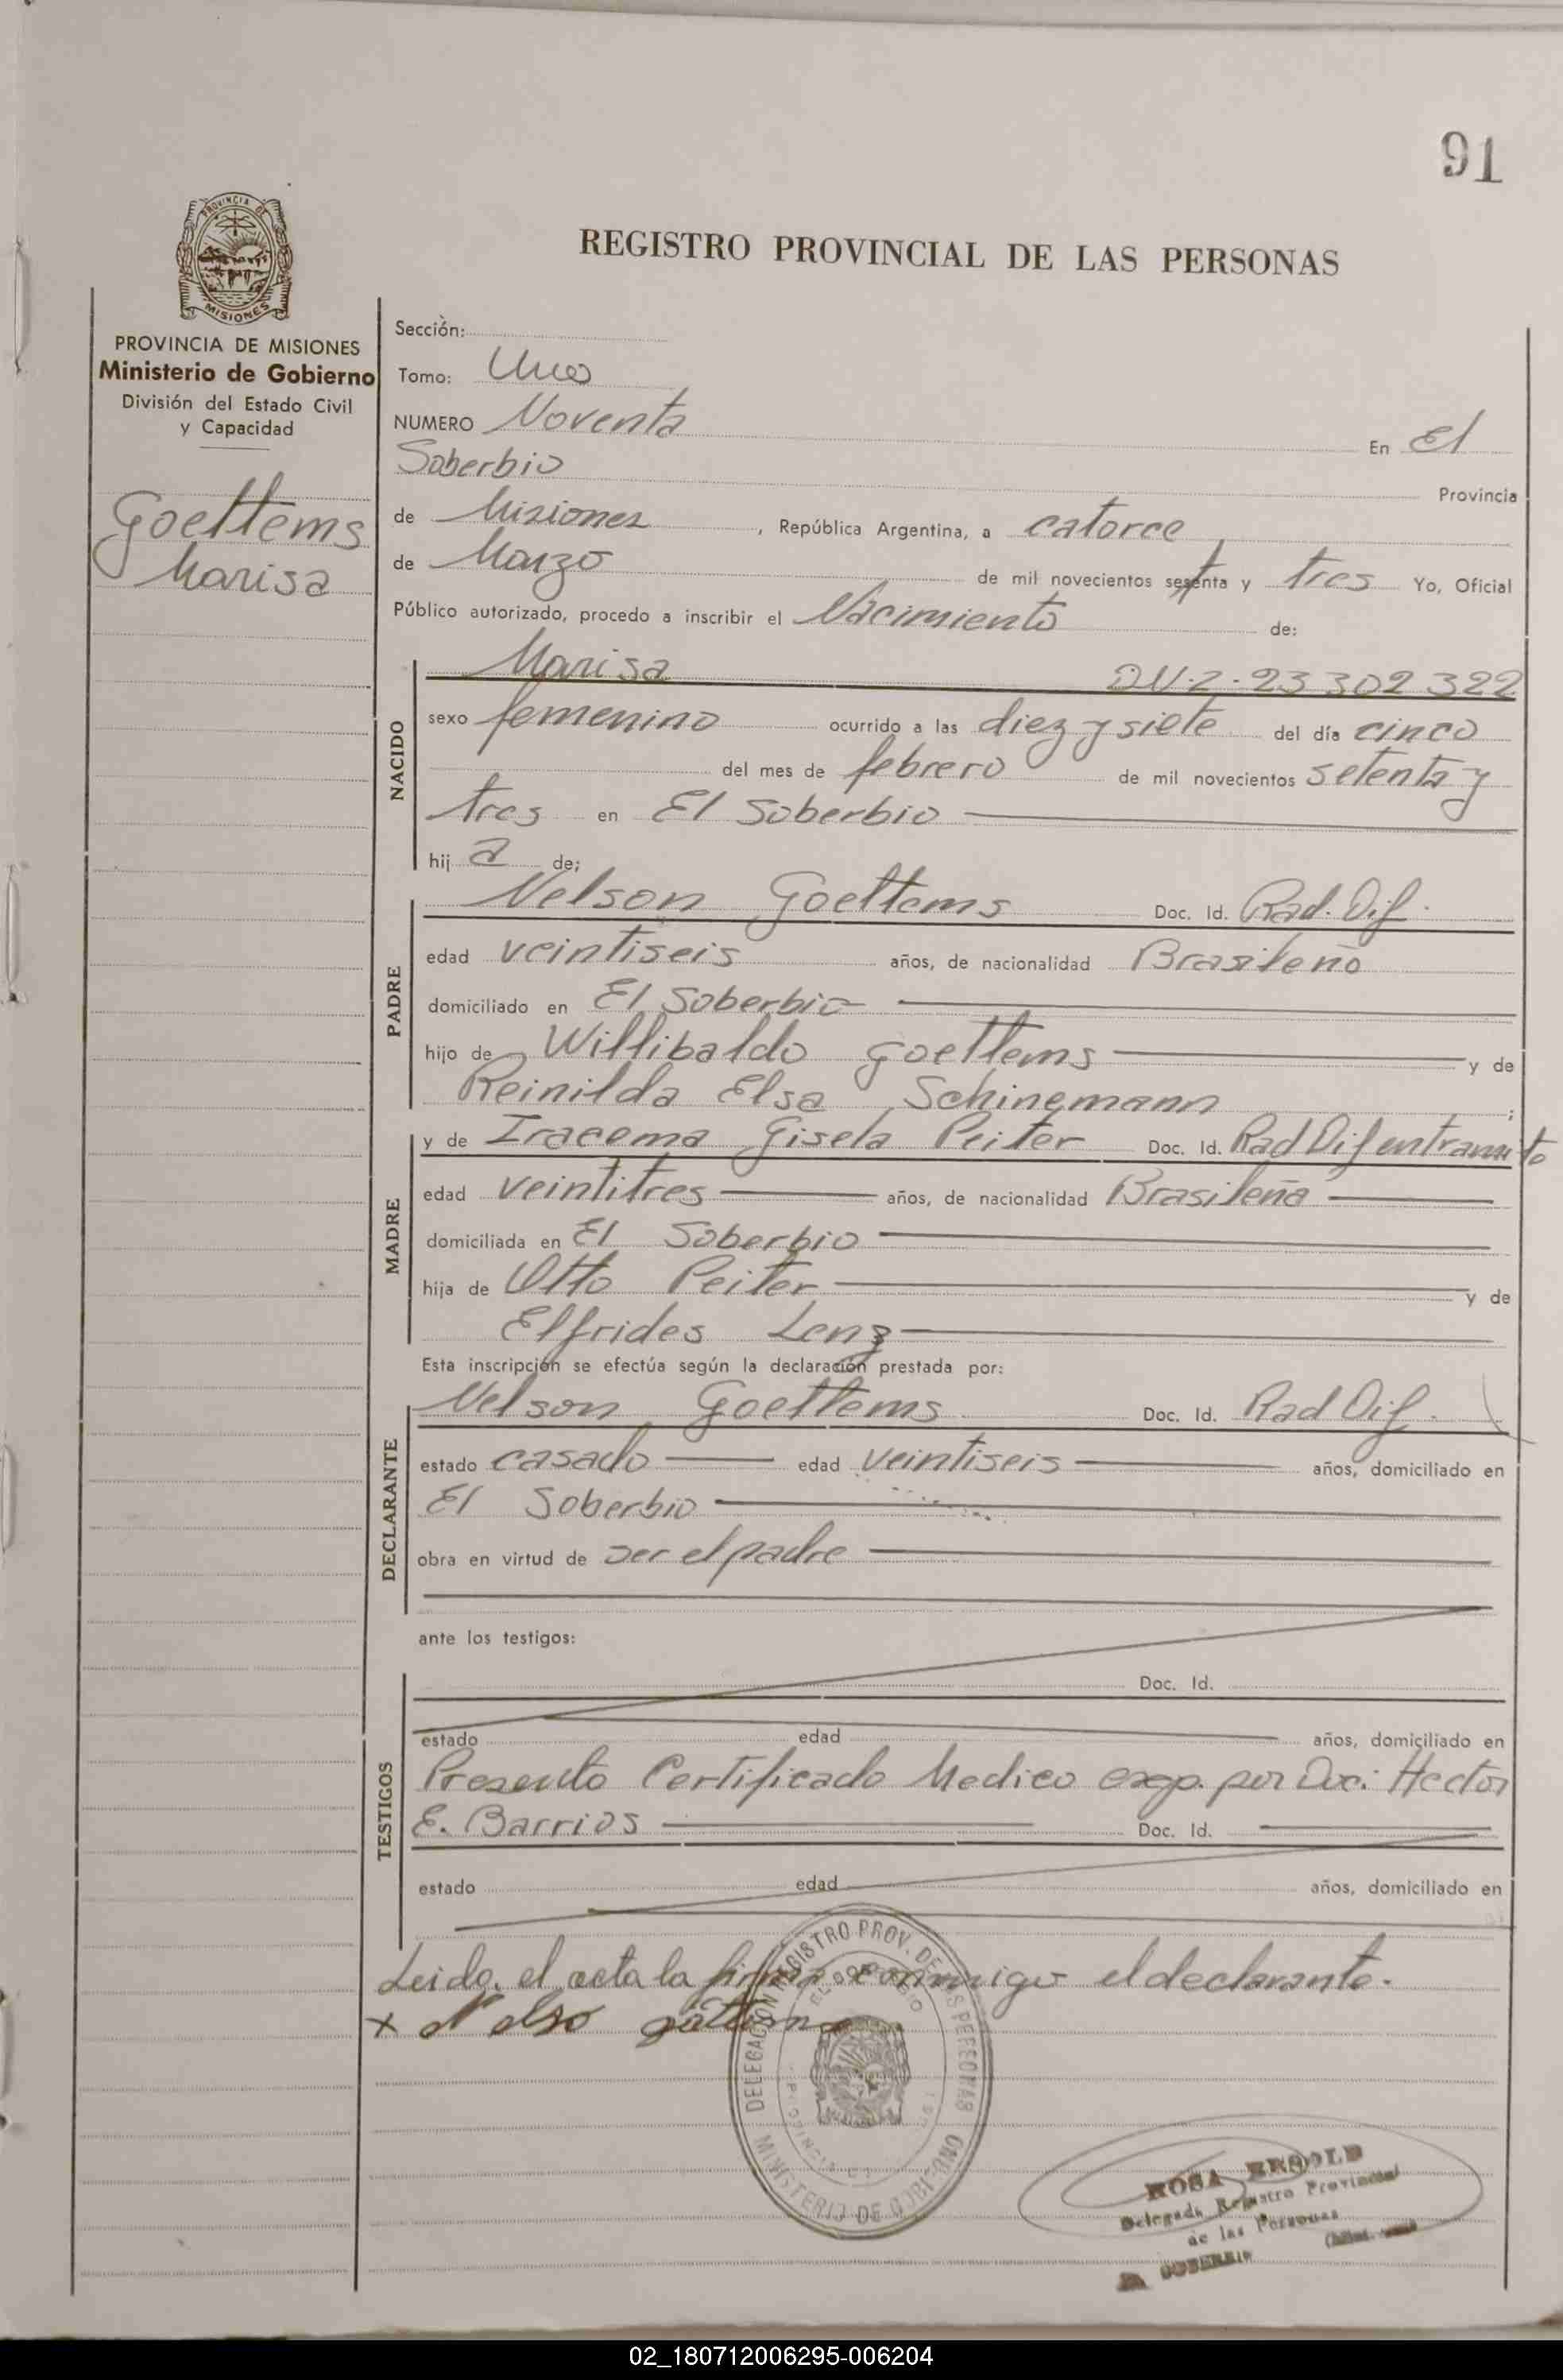 91
PROVINCIA DE
MISIONES
REGISTRO PROVINCIAL DE LAS PERSONAS
PROVINCIA DE MISIONES
Ministerio de Gobierno
División del Estado Civil
y Capacidad
Goettems
Marisa
Sección:
Tomo: Uno
NUMERO Noventa En El
Soberbio Provincia
de Misiones, República Argentina, a catorce
de Marzo de mil novecientos setenta y tres Yo, Oficial
Público autorizado, procedo a inscribir el Nacimiento de:
NACIDO
Marisa D.N.I. 23 302 322
sexo femenino ocurrido a las diez y siete del día cinco
del mes de febrero de mil novecientos setenta y
tres en El Soberbio
hij a de;
PADRE
Nelson Goettems Doc. Id. Rad. Dif.
edad veintiseis años, de nacionalidad Brasileño
domiciliado en El Soberbio
hijo de Willibaldo Goettems y de
Reinilda Elsa Schinemann ;
MADRE
y de Iracema Gisela Peiter Doc. Id. Rad Dif en tramite
edad veintitres años, de nacionalidad Brasileña
domiciliada en El Soberbio
hija de Otto Peiter y de
Elfrides Lenz
Esta inscripción se efectúa según la declaración prestada por:
DECLARANTE
Nelson Goettems Doc. Id. Rad Dif.
estado casado edad veintiseis años, domiciliado en
El Soberbio
obra en virtud de ser el padre
ante los testigos:
TESTIGOS
Doc. Id.
estado edad años, domiciliado en
Presento Certificado Medico exp. por Doc: Hector
E. Barrios Doc. Id.
estado edad años, domiciliado en
Leida el acta la firma conmigo el declarante.
DELEGACION REGISTRO PROV. DE LAS PERSONAS
EL SOBERBIO
MINISTERIO DE GOBIERNO
ROSA
Delegada Registro Provincial
de las Personas
SOBERBIO
02_180712006295-006204